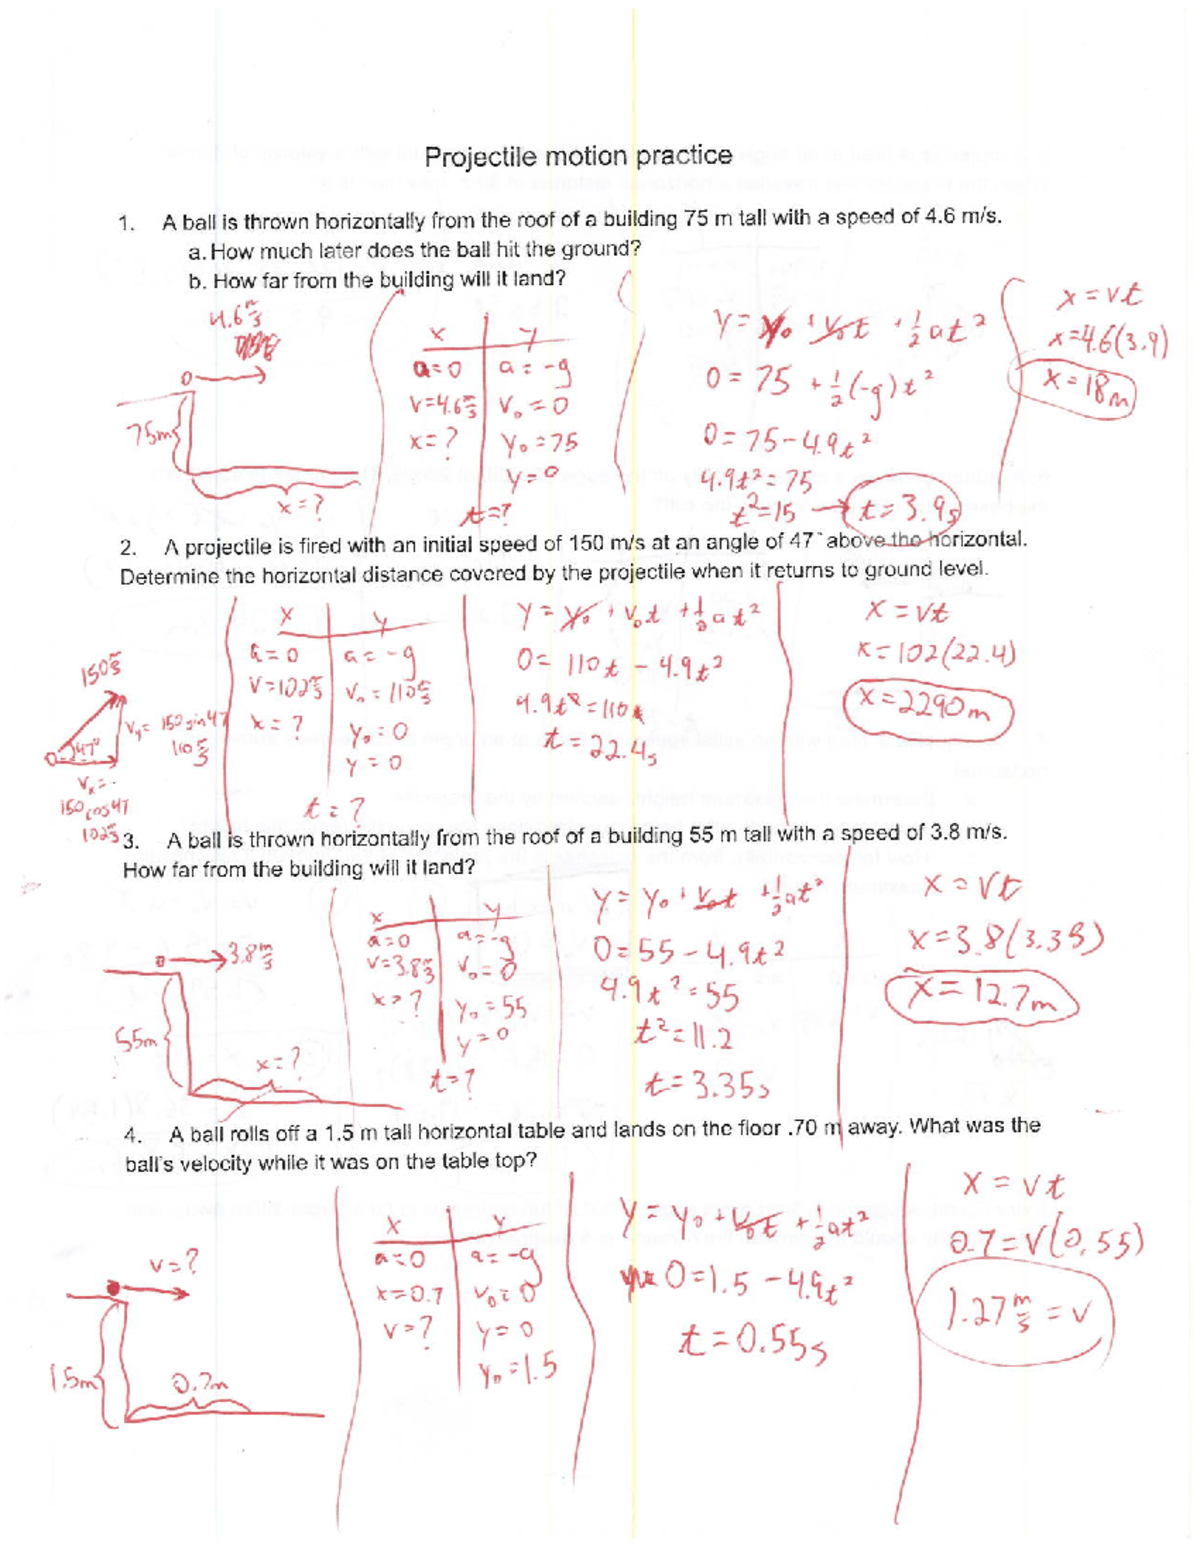 Projectile motion practice
1. A ball is thrown horizontally from the roof of a building 75 m tall with a speed of 4.6 m/s.
a. How much later does the ball hit the ground?
b. How far from the building will it land?
4.6 m/s
75m
x=?
x y
a=0 a=-g
v=4.6 m/s v₀=0
x=? y₀=75
y=0
t=?
y = y₀ + v₀t + ½at²
0 = 75 + ½(-g)t²
0 = 75 - 4.9t²
4.9t² = 75
t² = 15 → t = 3.9s
x = vt
x = 4.6(3.9)
x = 18m
2. A projectile is fired with an initial speed of 150 m/s at an angle of 47° above the horizontal.
Determine the horizontal distance covered by the projectile when it returns to ground level.
150 m/s
47°
Vy = 150 sin 47
110 m/s
Vx =
150 cos 47
102 m/s
x y
a=0 a=-g
v=102 m/s v₀=110 m/s
x=? y₀=0
y=0
t=?
y = y₀ + v₀t + ½at²
0 = 110t - 4.9t²
4.9t² = 110t
t = 22.4s
x = vt
x = 102(22.4)
x = 2290m
3. A ball is thrown horizontally from the roof of a building 55 m tall with a speed of 3.8 m/s.
How far from the building will it land?
3.8 m/s
55m
x=?
x y
a=0 a=-g
v=3.8 m/s v₀=0
x=? y₀=55
y=0
t=?
y = y₀ + v₀t + ½at²
0 = 55 - 4.9t²
4.9t² = 55
t² = 11.2
t = 3.35s
x = vt
x = 3.8(3.35)
x = 12.7m
4. A ball rolls off a 1.5 m tall horizontal table and lands on the floor .70 m away. What was the
ball's velocity while it was on the table top?
v=?
1.5m
0.7m
x y
a=0 a=-g
x=0.7 v₀=0
v=? y=0
y₀=1.5
y = y₀ + v₀t + ½at²
0 = 1.5 - 4.9t²
t = 0.55s
x = vt
0.7 = v(0.55)
1.27 m/s = v